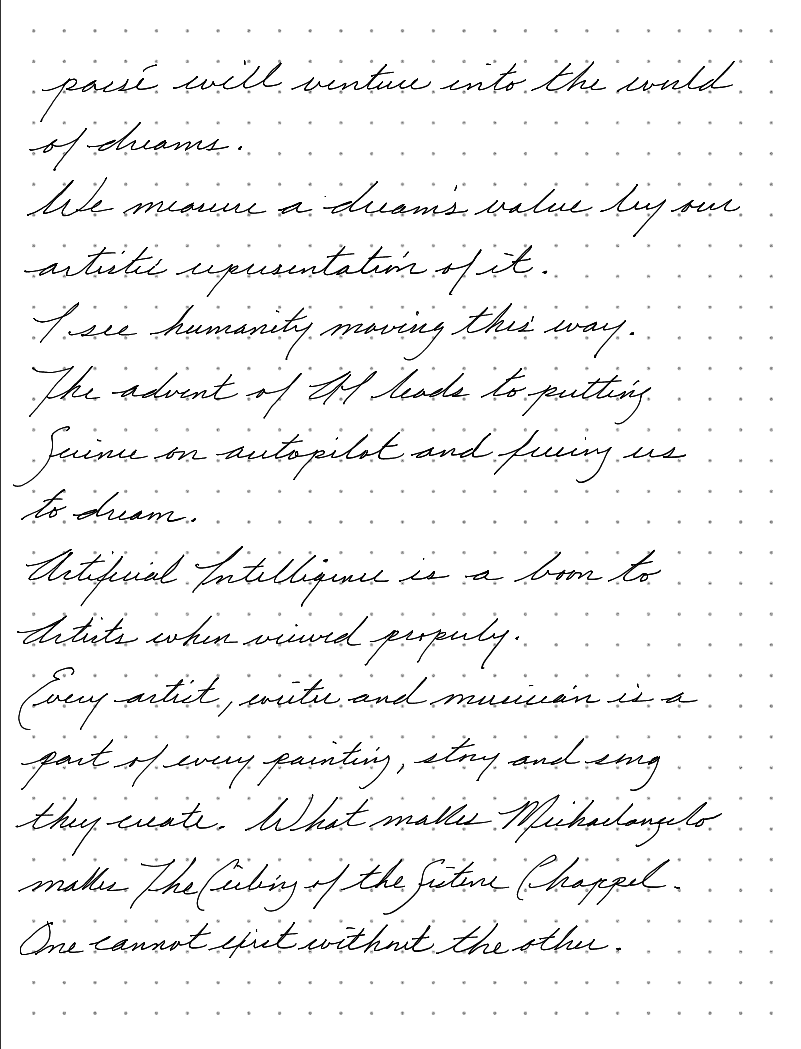 will venture into the world
of dreams.
We measure a dream's value by our
artistic representation of it.
I see humanity moving this way.
The advent of AI leads to putting
Science on autopilot and freeing us
to dream.
Artificial Intelligence is a boon to
Artists when viewed properly.
Every artist, writer and musician is a
part of every painting, story and song
they create. What makes Michaelangelo
makes The Ceiling of the Sistene Chappel.
One cannot exist without the other.